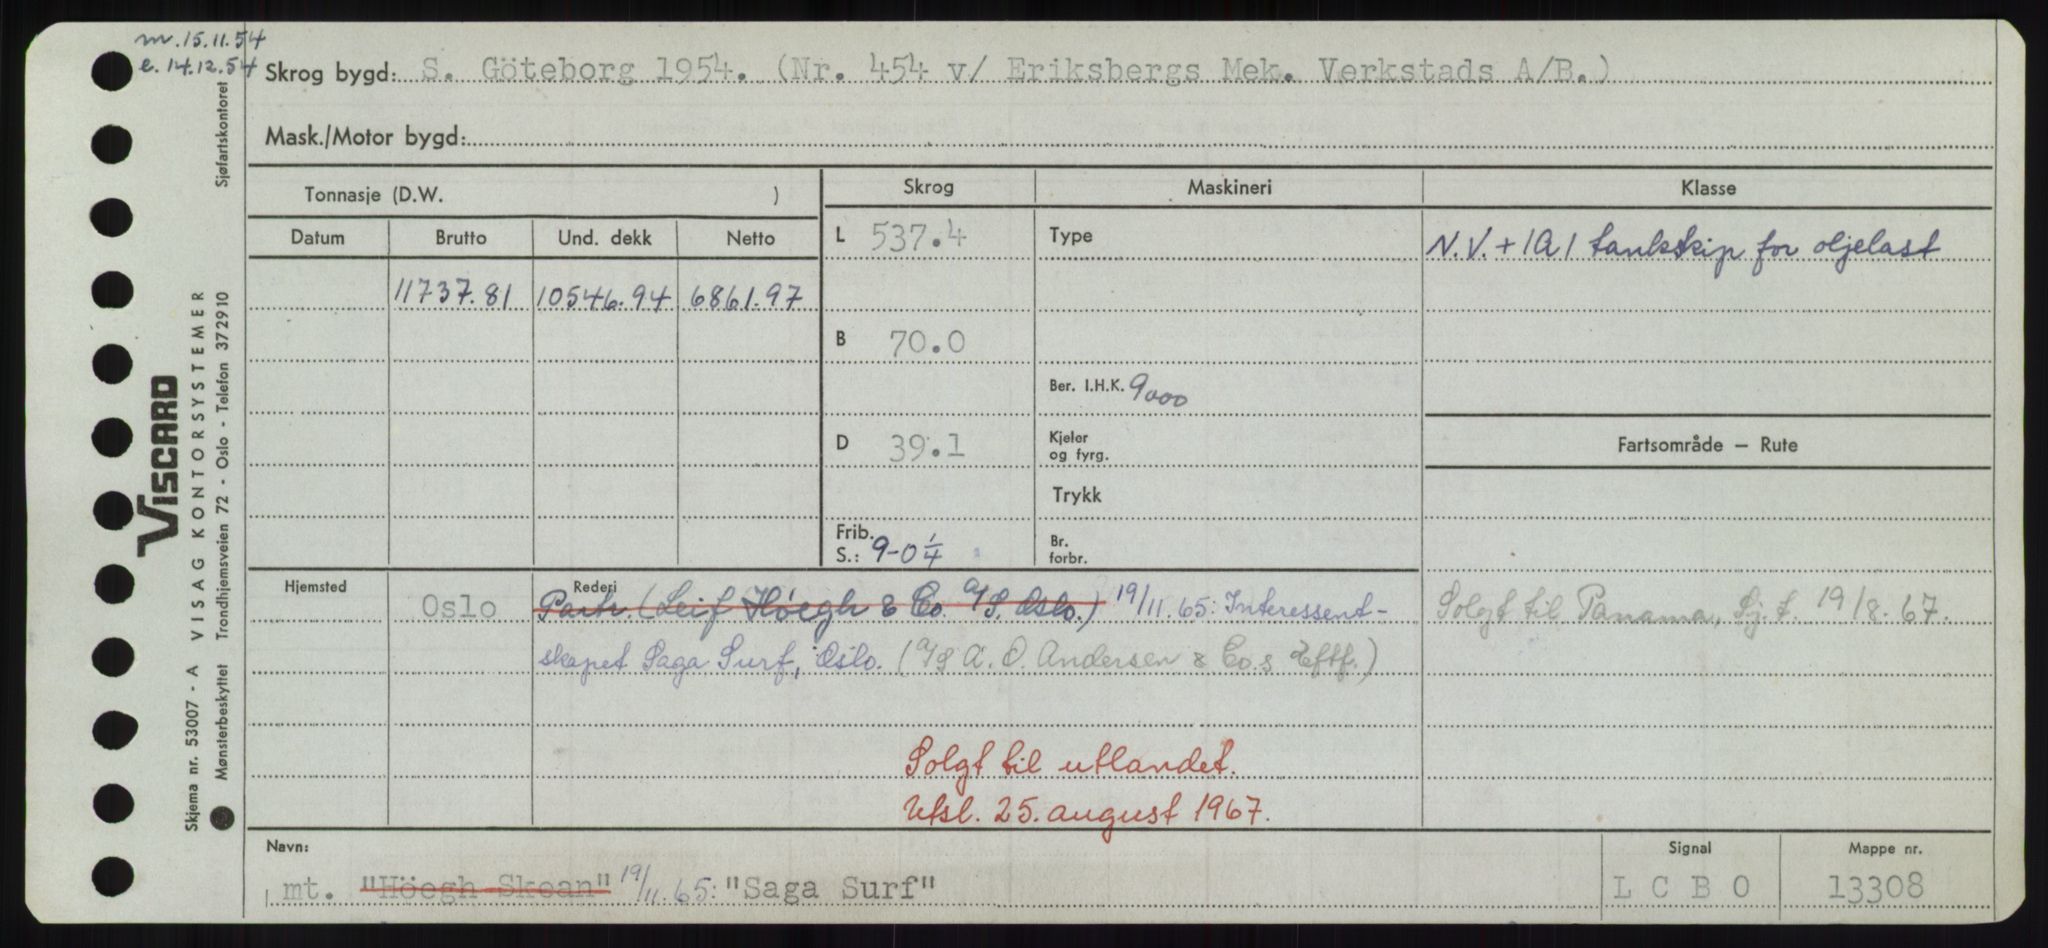 m. 15.11.54
e. 14.12.54
Skrog bygd: S. Göteborg 1954. (Nr. 454 v/ Eriksbergs Mek. Verkstads A/B.)
Mask./Motor bygd:
Tonnasje (D.W. )
Skrog
Maskineri
Klasse
Datum Brutto Und. dekk Netto
L 537.4
Type
N.V. + 1A1 tankskip for oljelast
11737.81 10546.94 6861.97
B 70.0
Ber. I.H.K. 9000
D 39.1
Kjeler
og fyrg.
Fartsområde — Rute
Trykk
Frib.
S.: 9-0 1/4
Br.
forbr.
Hjemsted
Oslo
Rederi
Partr. (Leif Höegh & Co. A/S, Oslo.) 19/11.65: Interessent-
skapet Saga Surf, Oslo. (A/S A. O. Andersen & Co.s Eftf.)
Solgt til Panama, Sj.t. 19/8.67.
Solgt til utlandet.
Utsl. 25. august 1967.
Navn:
mt. "Höegh Skean" 19/11.65: "Saga Surf"
Signal
L C B O
Mappe nr.
13308
VISCARD
VISAG KONTORSYSTEMER
Skjema nr. 53007 - A
Mønsterbeskyttet Trondhjemsveien 72 - Oslo - Telefon 372910
Sjøfartskontoret